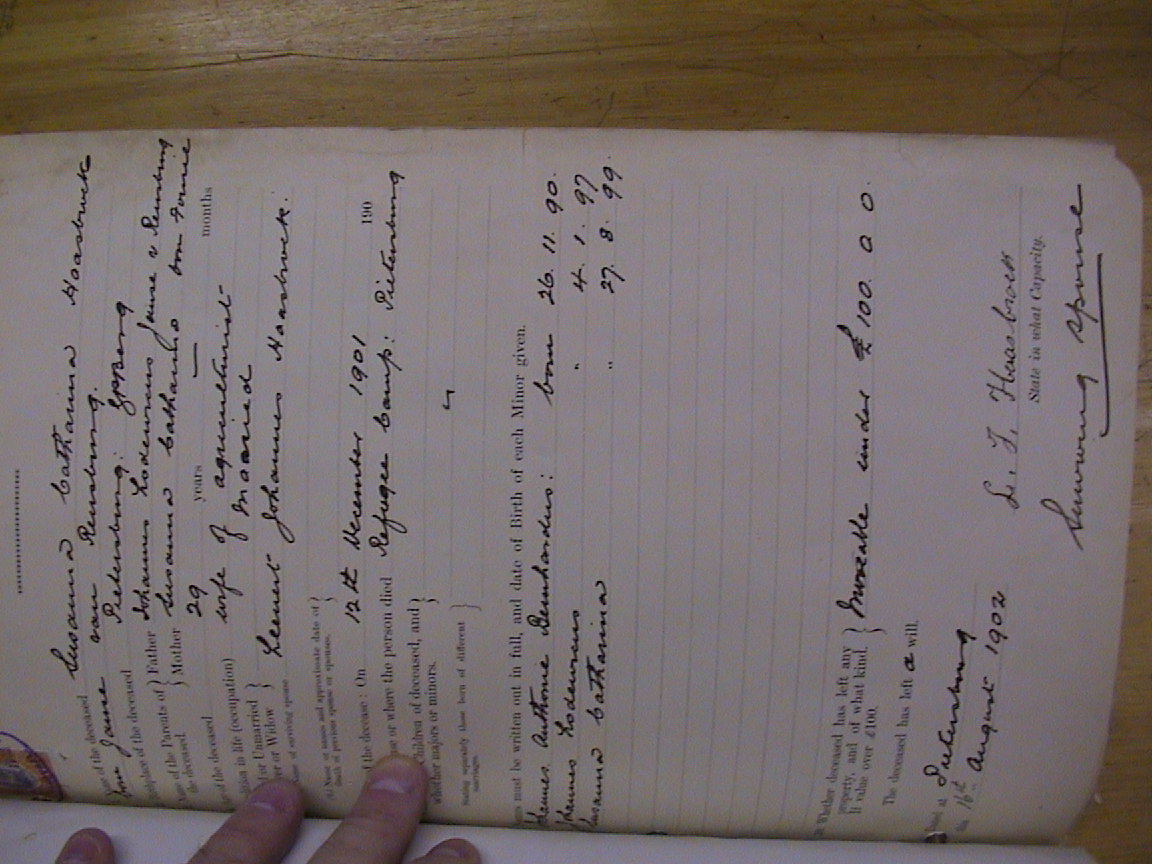 Name of the deceased Susanna Catharina Haasbroek
born Janse van Rensburg.
Birthplace of the deceased Pietersburg:
Names of the Parents of the deceased { Father Johannes Lodewicus Janse v Rensburg
{ Mother Susanna Catharina born Fourie
Age of the deceased 29 years — months
Condition in life (occupation) wife of agriculturist
Married or Unmarried Widower or Widow } Married
Name of surviving spouse Leenert Johannes Haasbroek.
(b) Name or names and approximate date of death of previous spouse or spouses. }
of the decease: On 12th December 1901 190
House or where the person died Refugee Camp: Pietersburg
Children of deceased, and whether majors or minors. }
stating separately those born of different marriages. }
must be written out in full, and date of Birth of each Minor given.
Johannes Anthonie Bernhardus: born 26. 11. 90.
Johannes Lodewicus " 4. 1. 97
Susanna Catharina " 27. 8. 99.
Whether deceased has left any property, and of what kind. If value over £100. } Moveable under £100. 0 0.
The deceased has left a will.
Dated at Pietersburg
the 16th August 1902
L. J. Haasbroek
State in what Capacity.
Surviving Spouse